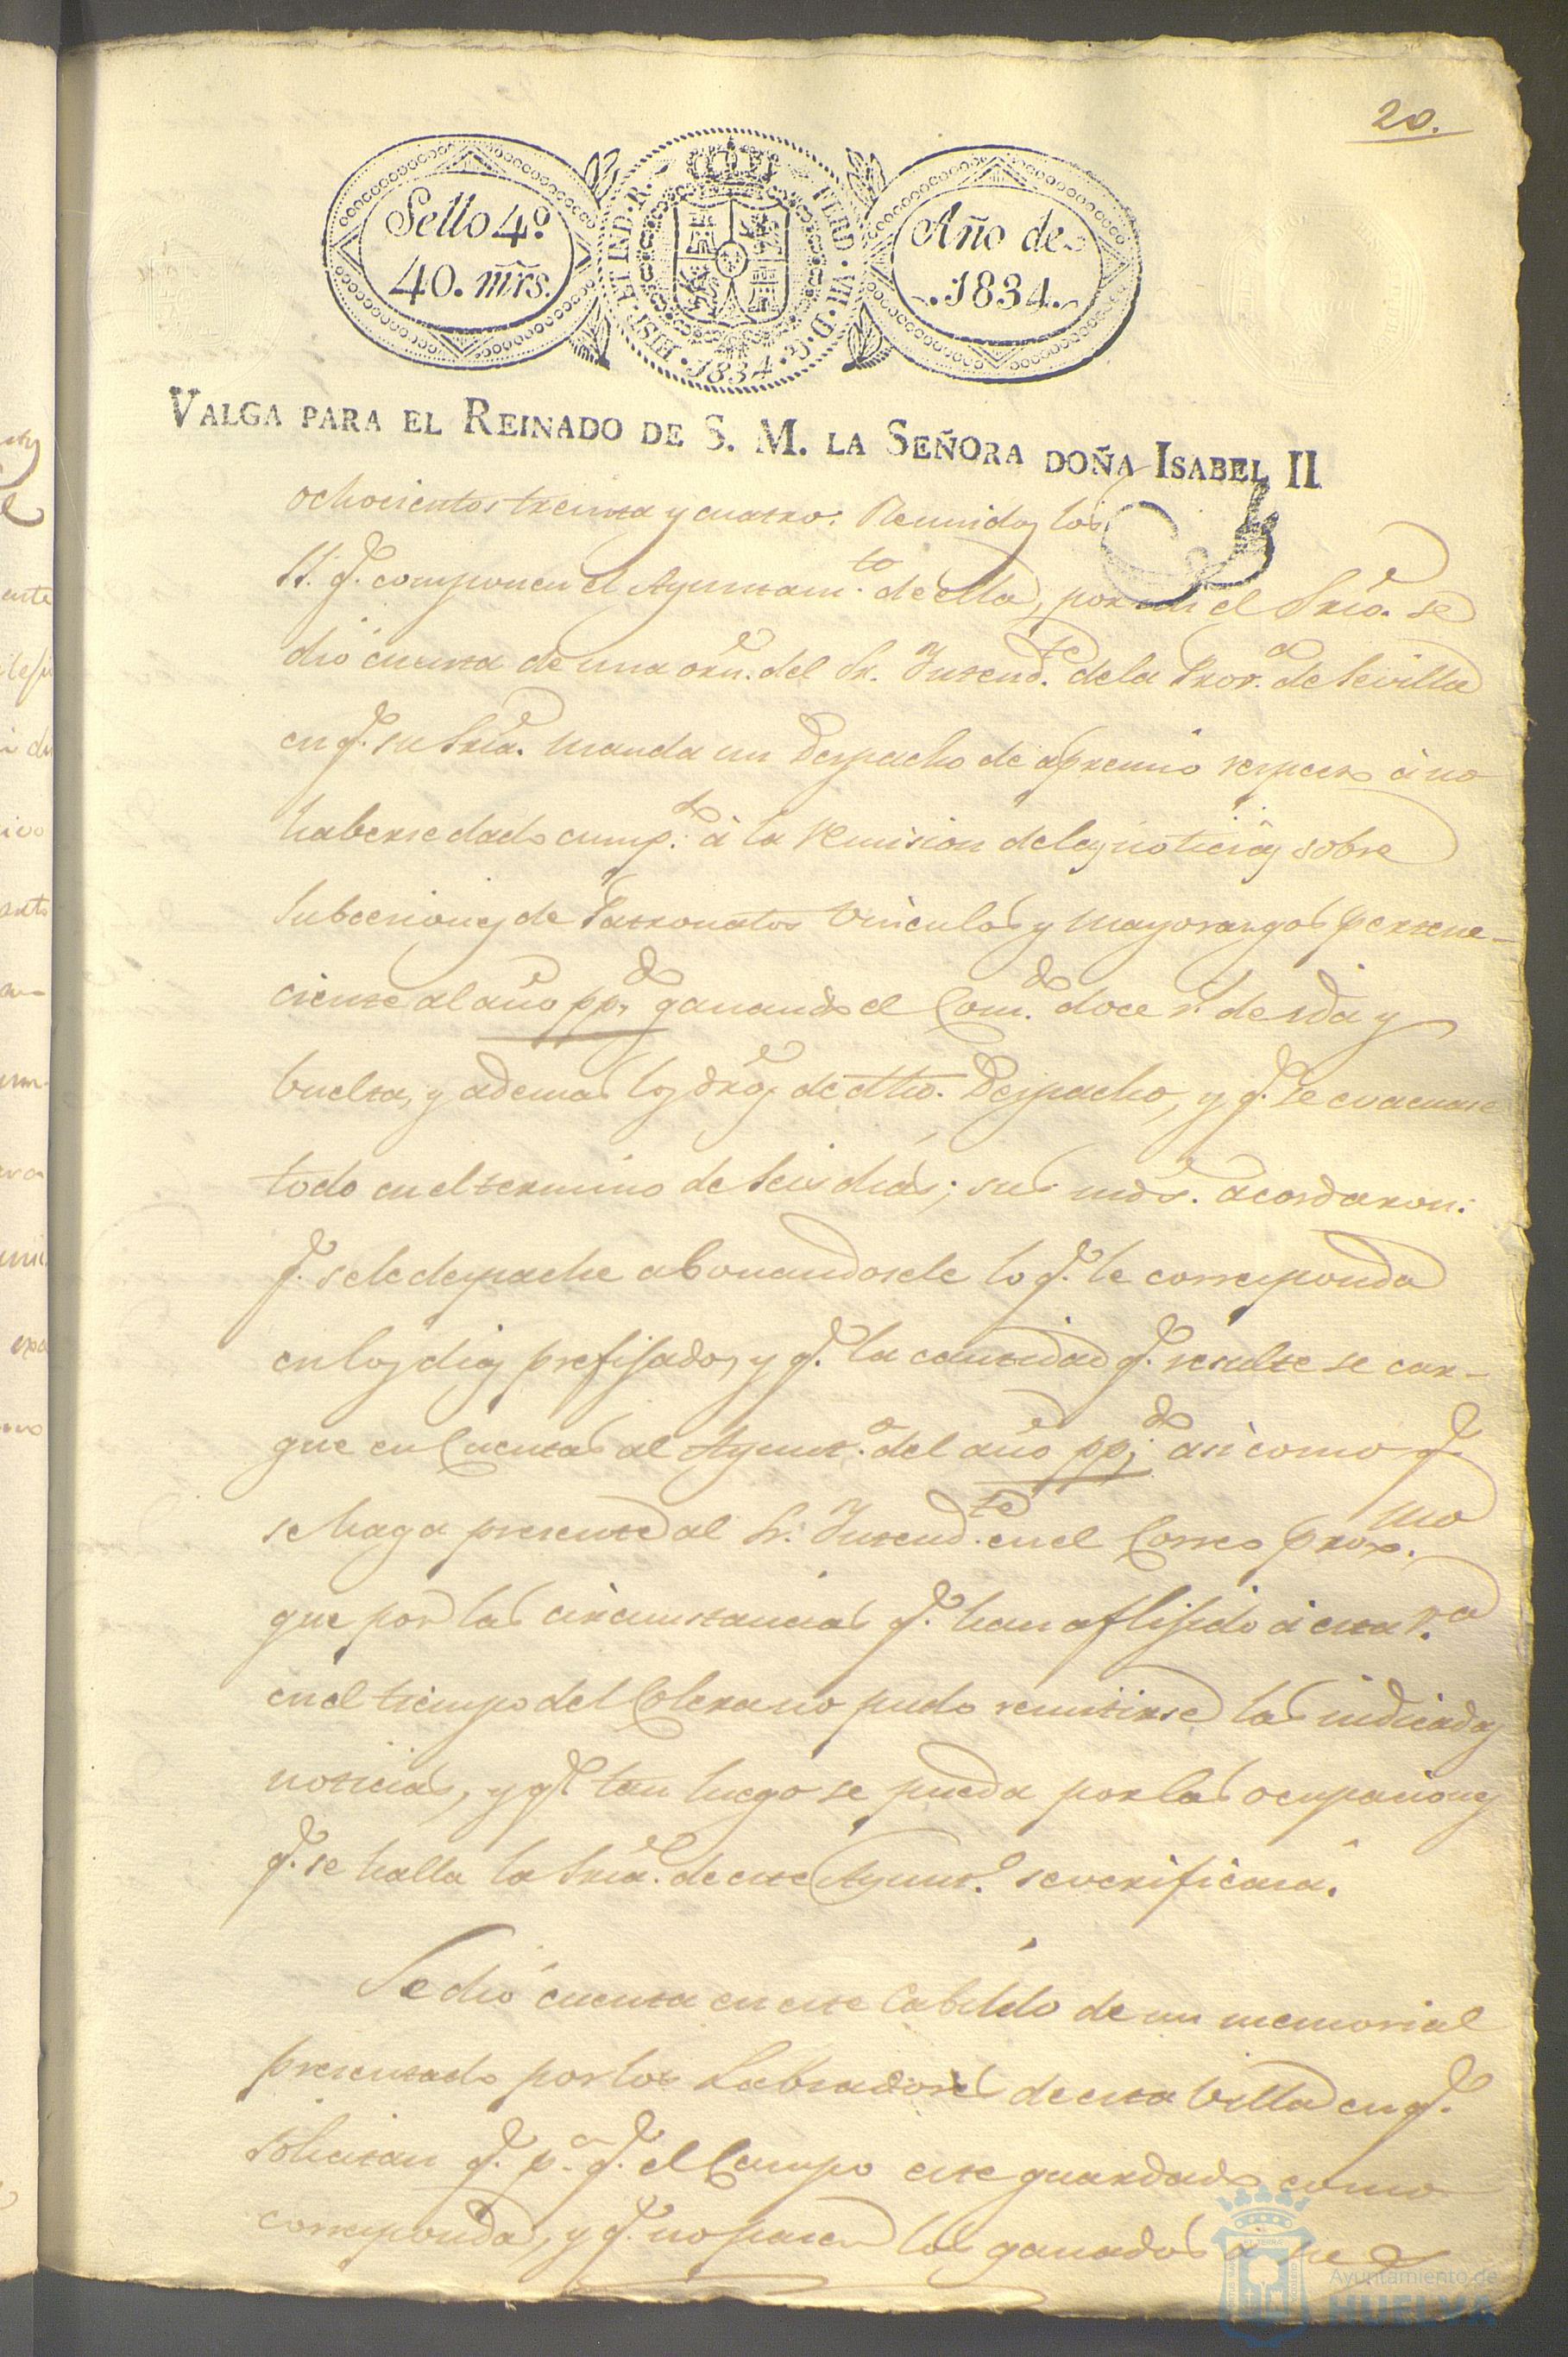 20.
Sello 4º
40. mrs.
HISP. ET IND. R.
FERD. VII. D. G.
1834
Año de
1834.
VALGA PARA EL REINADO DE S. M. LA SEÑORA DOÑA ISABEL II
ochocientos treinta y cuatro: Reunidos los
SS. q.e componen el Ayuntam.to de ella, por mi el Srio. se
dió cuenta de una orn. del Sr. Intend.te de la Prov.a de Sevilla
en q.e su Sria. manda un Despacho de apremio respecto á no
haberse dado cump.to á la remision de las noticias sobre
Subcesiones de Patronatos Vinculos y Mayorazgos pertene-
ciente al año pp.do ganando el Com.do doce r.s de ida y
buelta, y ademas los dros de dho. Despacho, y q.e se evacuase
todo en el termino de Seis dias; sus mds. acordaron:
q.e se le despache abonandosele lo q.e le corresponda
en los dias prefijados, y q.e la cantidad q.e resulte se car-
gue en Cuentas al Ayunt.o del año pp.do asi como q.e
se haga presente al Sr. Intend.te en el Correo prox.mo
que por las circunstancias q.e han aflijido á esta V.a
en el tiempo del Colera no pudo remitirse las indicadas
noticias, y q.e tan luego se pueda por las ocupaciones
q.e se halla la Sria. de este Ayunt.o se verificará.
Se dió cuenta en este Cabildo de un memorial
presentado por los Labradores de esta Villa en q.e
solicitan q.e p.a q.e el Campo este guardado como
corresponda, y q.e no pasen los ganados a
Ayuntamiento de
HUELVA